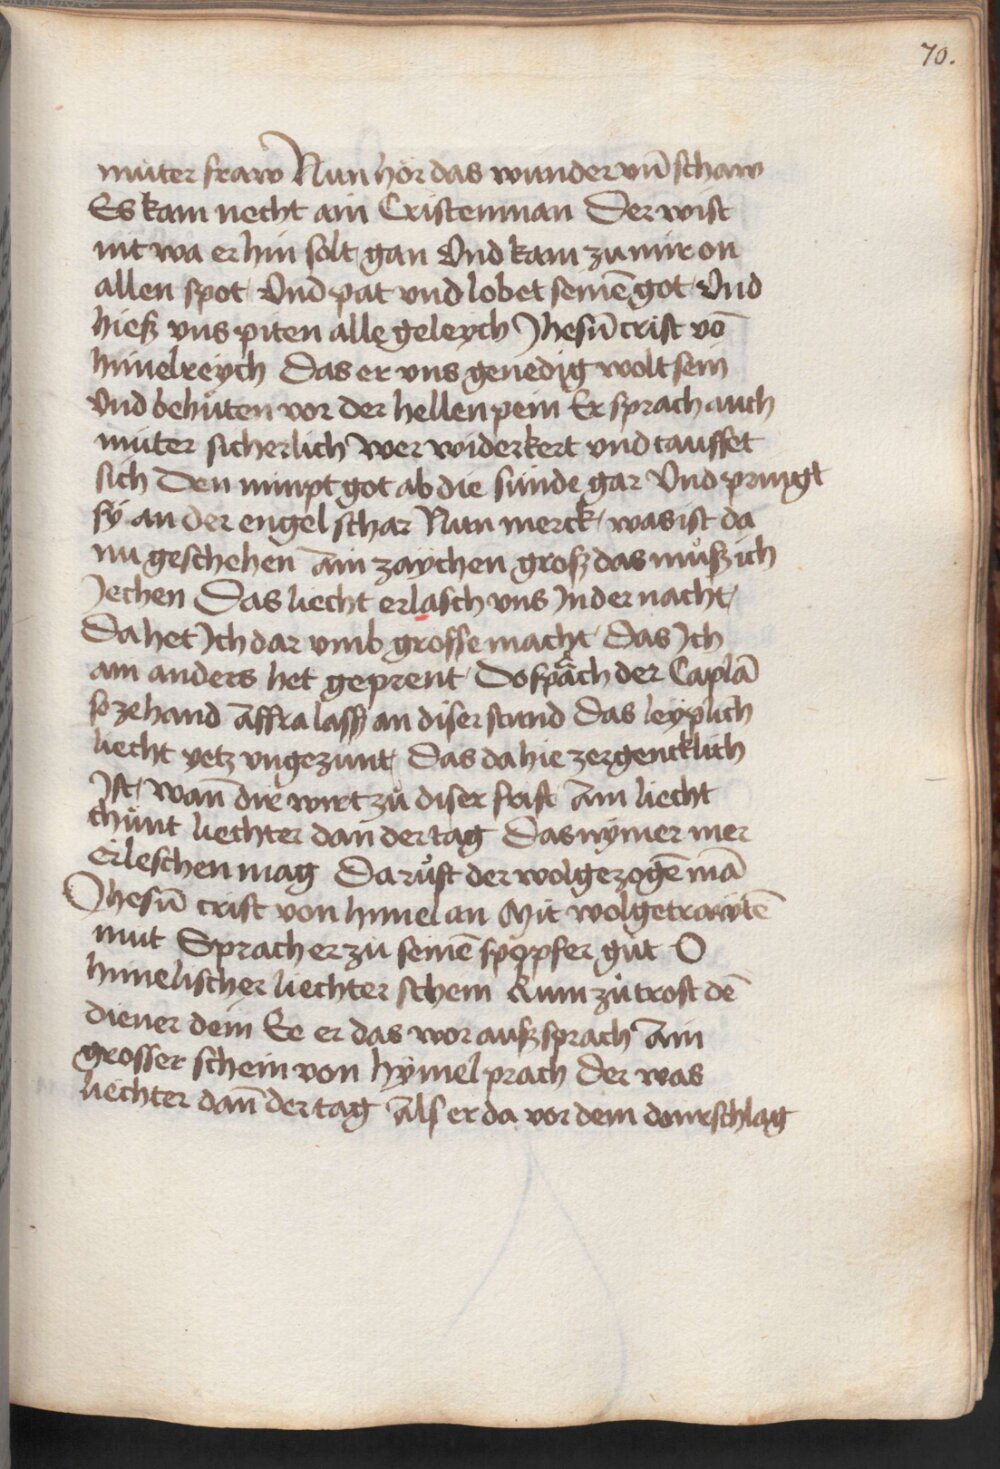 70.
muter fraw Nun hör das wunder vnd̄ schaw
Es kam necht ain Cristenman Der wist
nit wa er hin solt gan Vnd kam zu mir on
allen spot Vnd pat vnd lobet seinē got Vnd
hiesz vns piten alle geleych Jhesū crist vō
himelreych Das er vns genedig wolt sein
Vnd behůten vor der hellen pein Er sprach auch
muter sicherlich Wer widerkert vnd tauffet
sich Den nimpt got ab die sünde gar Vnd pringt
sÿ an der engel schar Nun merck was ist da
nu geschehen Ain zaychen grosz das můsz ich
Jechen Das liecht erlasch vns Jn der nacht
Da het Jch dar vmb grosse macht Das Jch
ain anders het geprent Do spräch der Caplā
so zehand Affra lass an diser stund Das leyplich
liecht yetz vngezünt Das da hie zergencklich
Jst wan̄ dir wirt zů diser frist Ain liecht
chünt liechter dan der tag Das nÿmer mer
erleschen mag Da růft der wolgezogē mā
Jhesū crist von himel an Mit wolgetrawtē
mut Sprach er zu seinē spopfer gut O
himelischer liechter schein Kum zů trost dē
diener dein Ee er das wor ausz sprach Ain
grosser schein von hÿmel prach Der was
liechter dan̄ der tag Als er da vor dem donrschlag